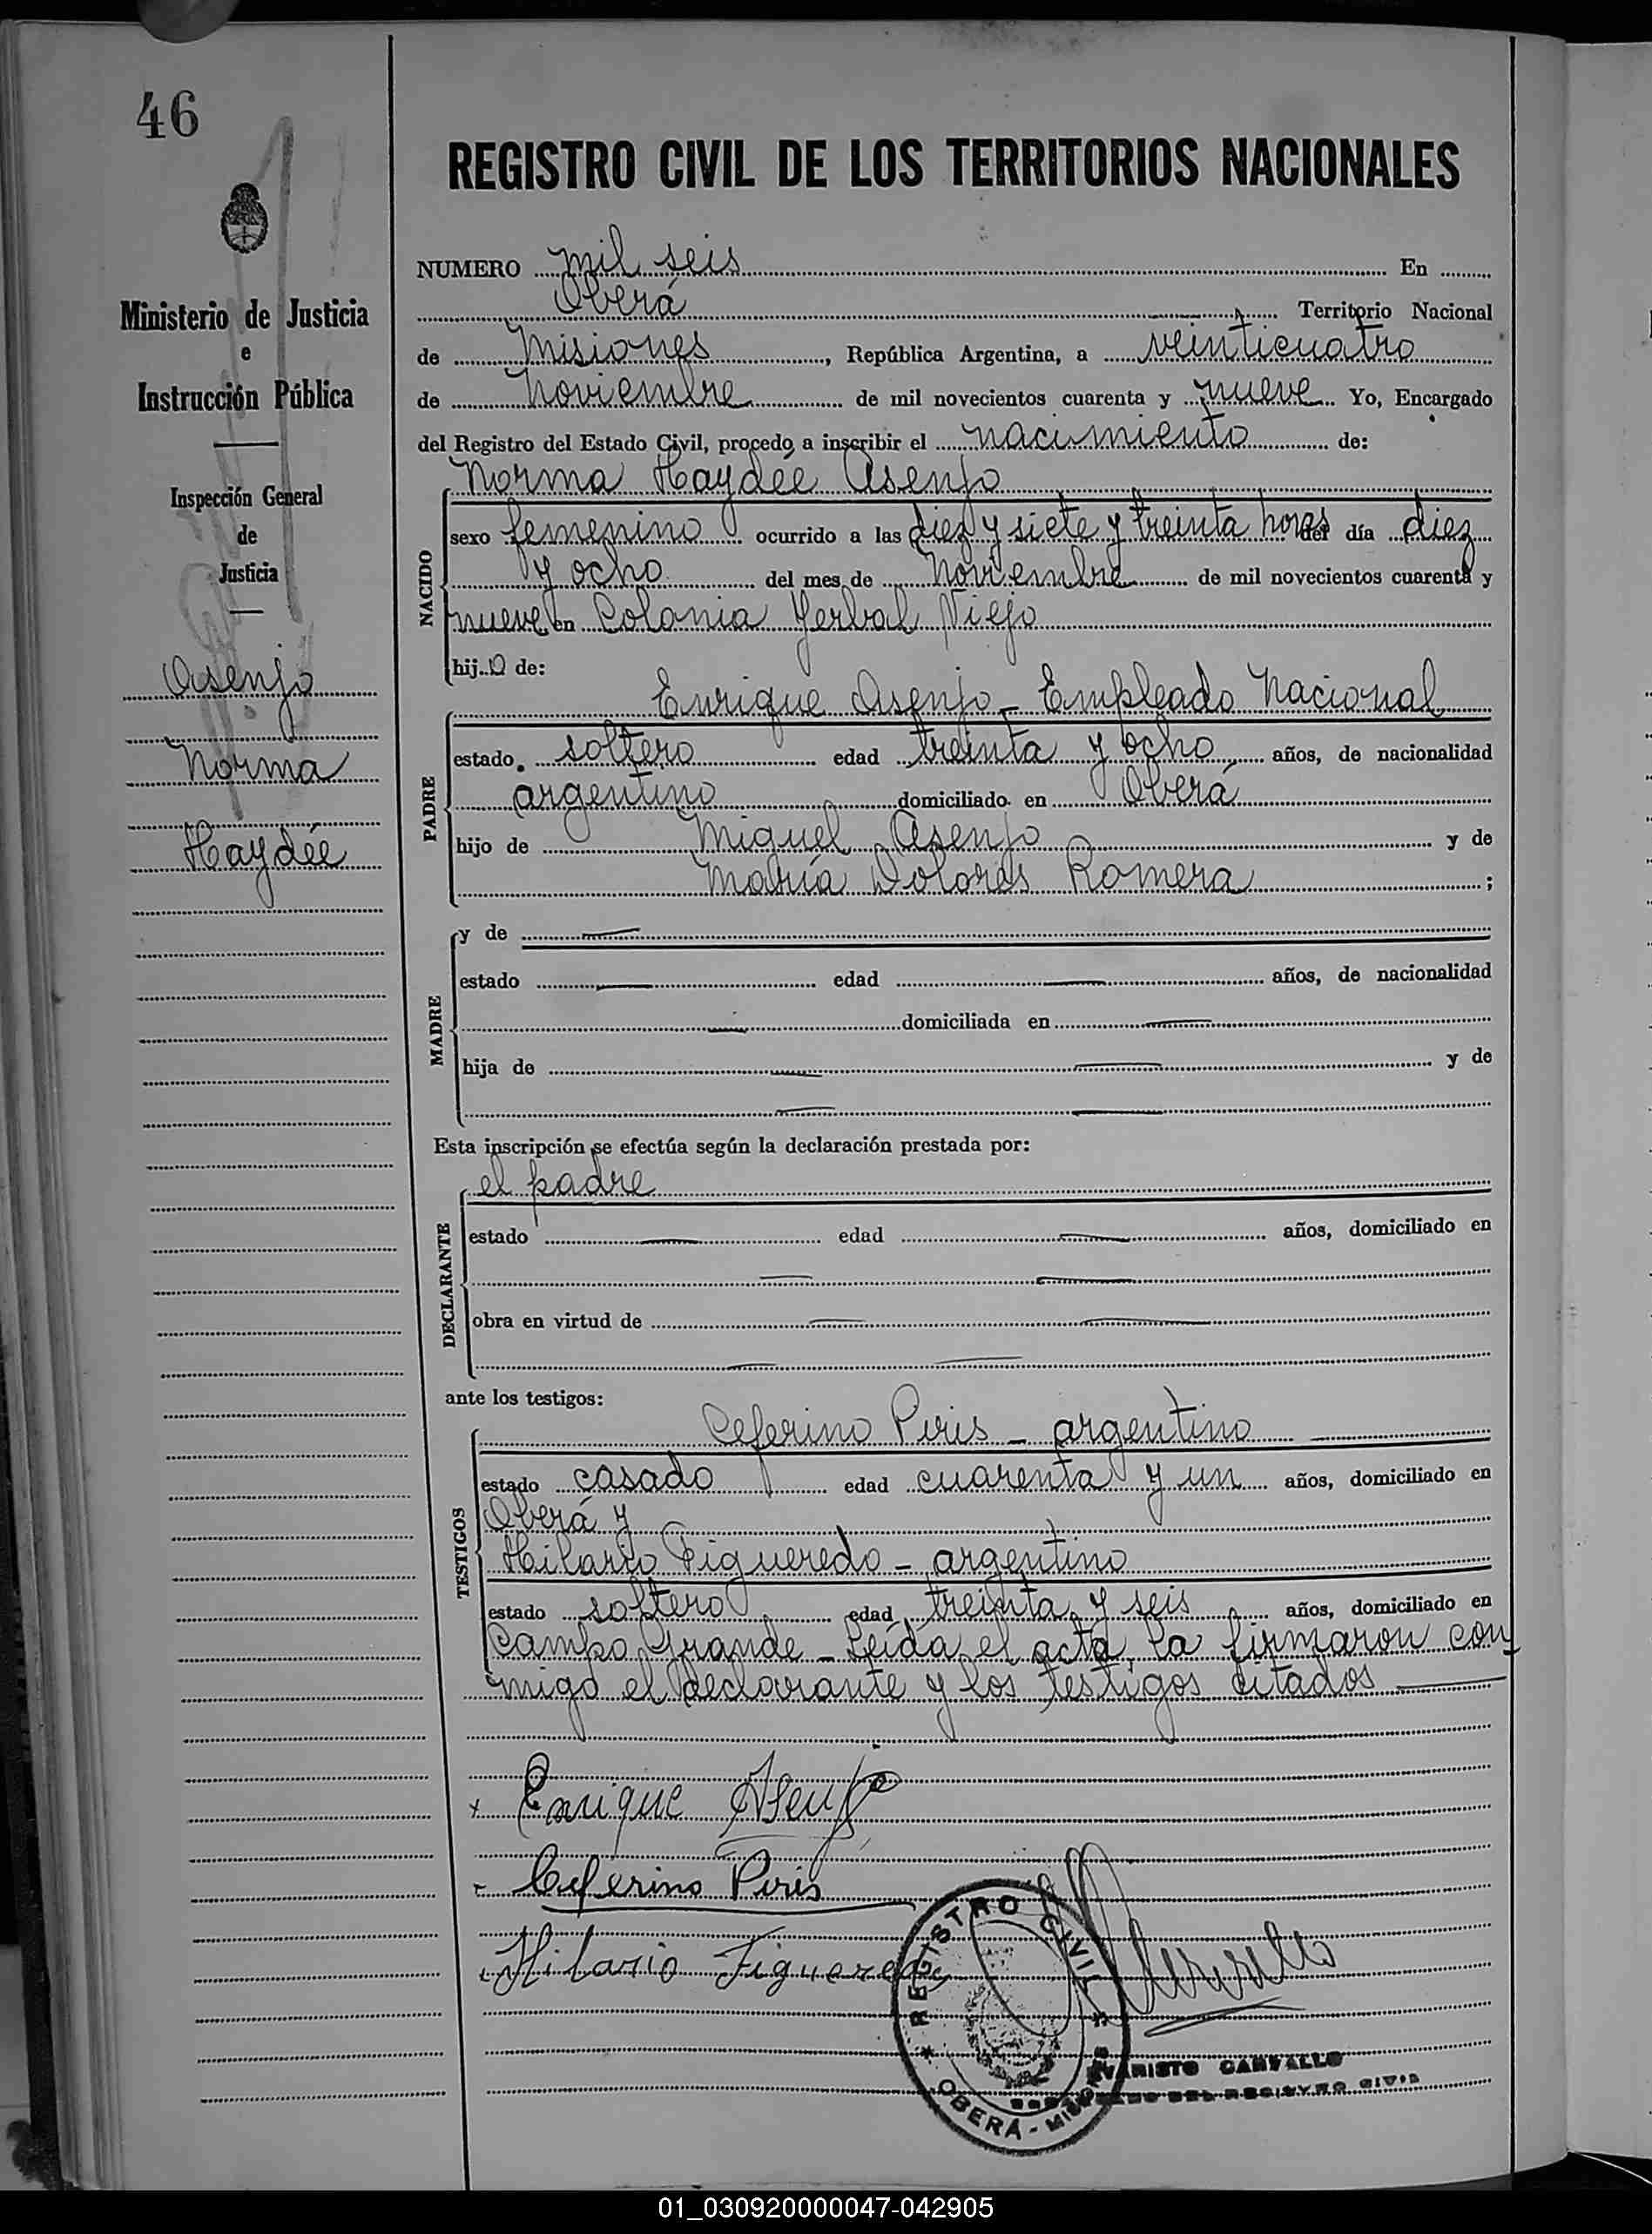 46
Ministerio de Justicia
e
Instrucción Pública
Inspección General
de
Justicia
Asenjo
Norma
Haydée
REGISTRO CIVIL DE LOS TERRITORIOS NACIONALES
NUMERO mil seis En
Oberá Territorio Nacional
de Misiones, República Argentina, a veinticuatro
de Noviembre de mil novecientos cuarenta y nueve Yo, Encargado
del Registro del Estado Civil, procedo a inscribir el nacimiento de:
Norma Haydée Asenjo
NACIDO
sexo femenino ocurrido a las diez y siete y treinta horas del día diez
y ocho del mes de Noviembre de mil novecientos cuarenta y
nueve en Colonia Yerbal Viejo
hija de:
Enrique Asenjo - Empleado Nacional
PADRE
estado soltero edad treinta y ocho años, de nacionalidad
argentino domiciliado en Oberá
hijo de Miguel Asenjo y de
María Dolores Romera;
MADRE
y de
estado edad años, de nacionalidad
domiciliada en
hija de y de
Esta inscripción se efectúa según la declaración prestada por:
el padre
DECLARANTE
estado edad años, domiciliado en
obra en virtud de
ante los testigos:
Ceferino Piris - argentino
TESTIGOS
estado casado edad cuarenta y un años, domiciliado en
Oberá y
Hilario Figueredo - argentino
estado soltero edad treinta y seis años, domiciliado en
Campo Grande - Leída el acta, la firmaron con
migo el declarante y los testigos citados
Enrique Asenjo
Ceferino Piris
Hilario Figueredo
REGISTRO CIVIL
OBERÁ - MISIONES
EVARISTO CARVALLO
ENCARGADO DEL REGISTRO CIVIL
01_030920000047-042905